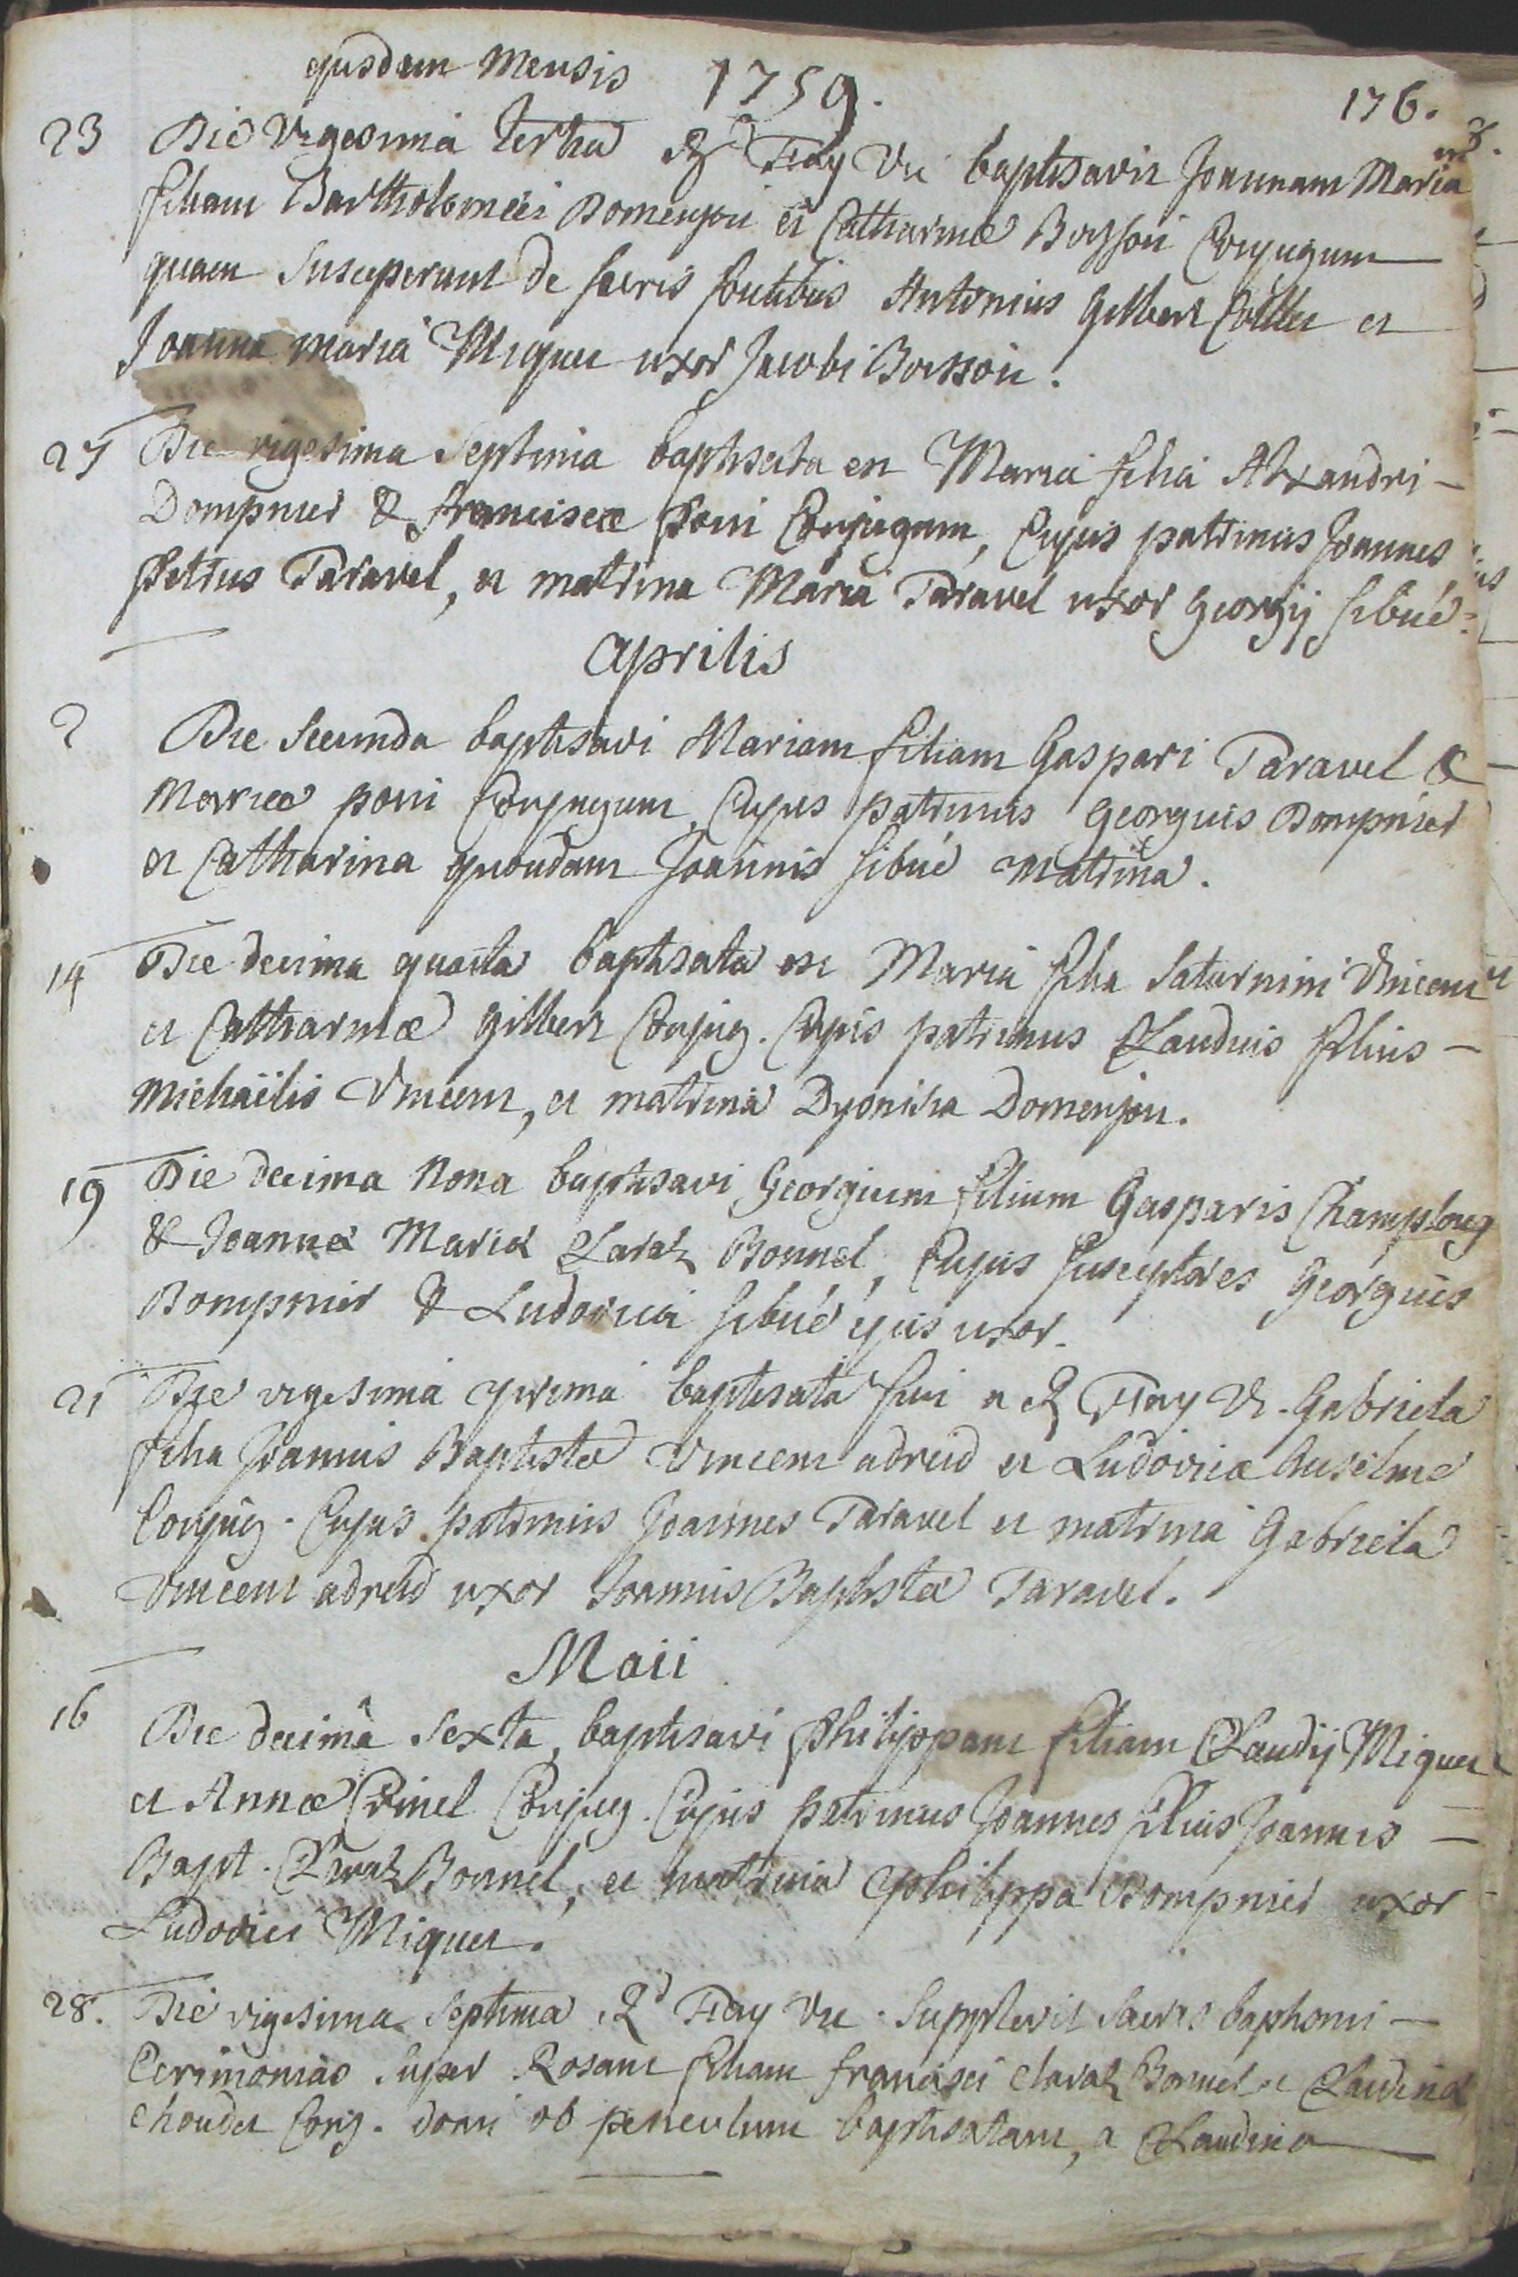 ejusdem Mensis 1759. 176.
23 Die Vigesima tertia Rd Flay Vic baptisavit Joannam Mariam
filiam Bartholomei Domenjon et Catharinæ Boisson Conjugum
quam Susceperunt de sacris fontibus Antonius Gilbert Collet et
Joanna maria Miquet uxor Jacobi Boisson.
27 Die vigesima Septima baptisata est Maria filia Alexandri
Dompnier & franciscæ poni Conjugum, Cujus patrinus Joannes
petrus Taravel, et matrina Maria Taravel uxor Georgij sibué.
Aprilis
2 Die Secunda baptisavi Mariam filiam Gaspari Taravel &
Mariæ poni Conjugum, Cujus patrinus Georgius Dompnier
et Catharina quondam Joannis sibué Matrina.
14 Die decima quarta baptisata est Maria filia Saturnini Vincent
et Catharinæ gilbert Conjug. Cujus patrinus Claudius filius
Michaëlis Vincent, et matrina Dyonisia Domenjon.
19 Die decima Nona baptisavi Georgium filium Gasparis Champlong
& Joannæ Mariæ Claraz Bonnel, Cujus susceptores Georgius
Dompnier & Ludovica sibué ejus uxor.
21 Die vigesima prima baptisata fuit a Rd Flay Vic. Gabriela
filia Joannis Baptistæ Vincent adreid et Ludovicæ Anselme
Conjug. Cujus patrinus Joannes Taravel et matrina Gabriela
Vincent adreid uxor Joannis Baptistæ Taravel.
Maii
16 Die decima Sexta, baptisavi philippam filiam Claudij Miquet
et Annæ Crinel Conjug. Cujus patrinus Joannes filius Joannis
Bapt. Claraz Bonnel, et matrina philippa Dompnier uxor
Ludovici Miquet.
28. Die vigesima Septima Rd Flay Vic. Supplevit sacris baptismi
Cerimonias super Rosam filiam francisci Claraz Bonnel et Claudinæ
Choudet Conj. domi ob periculum baptisatam, a Claudina